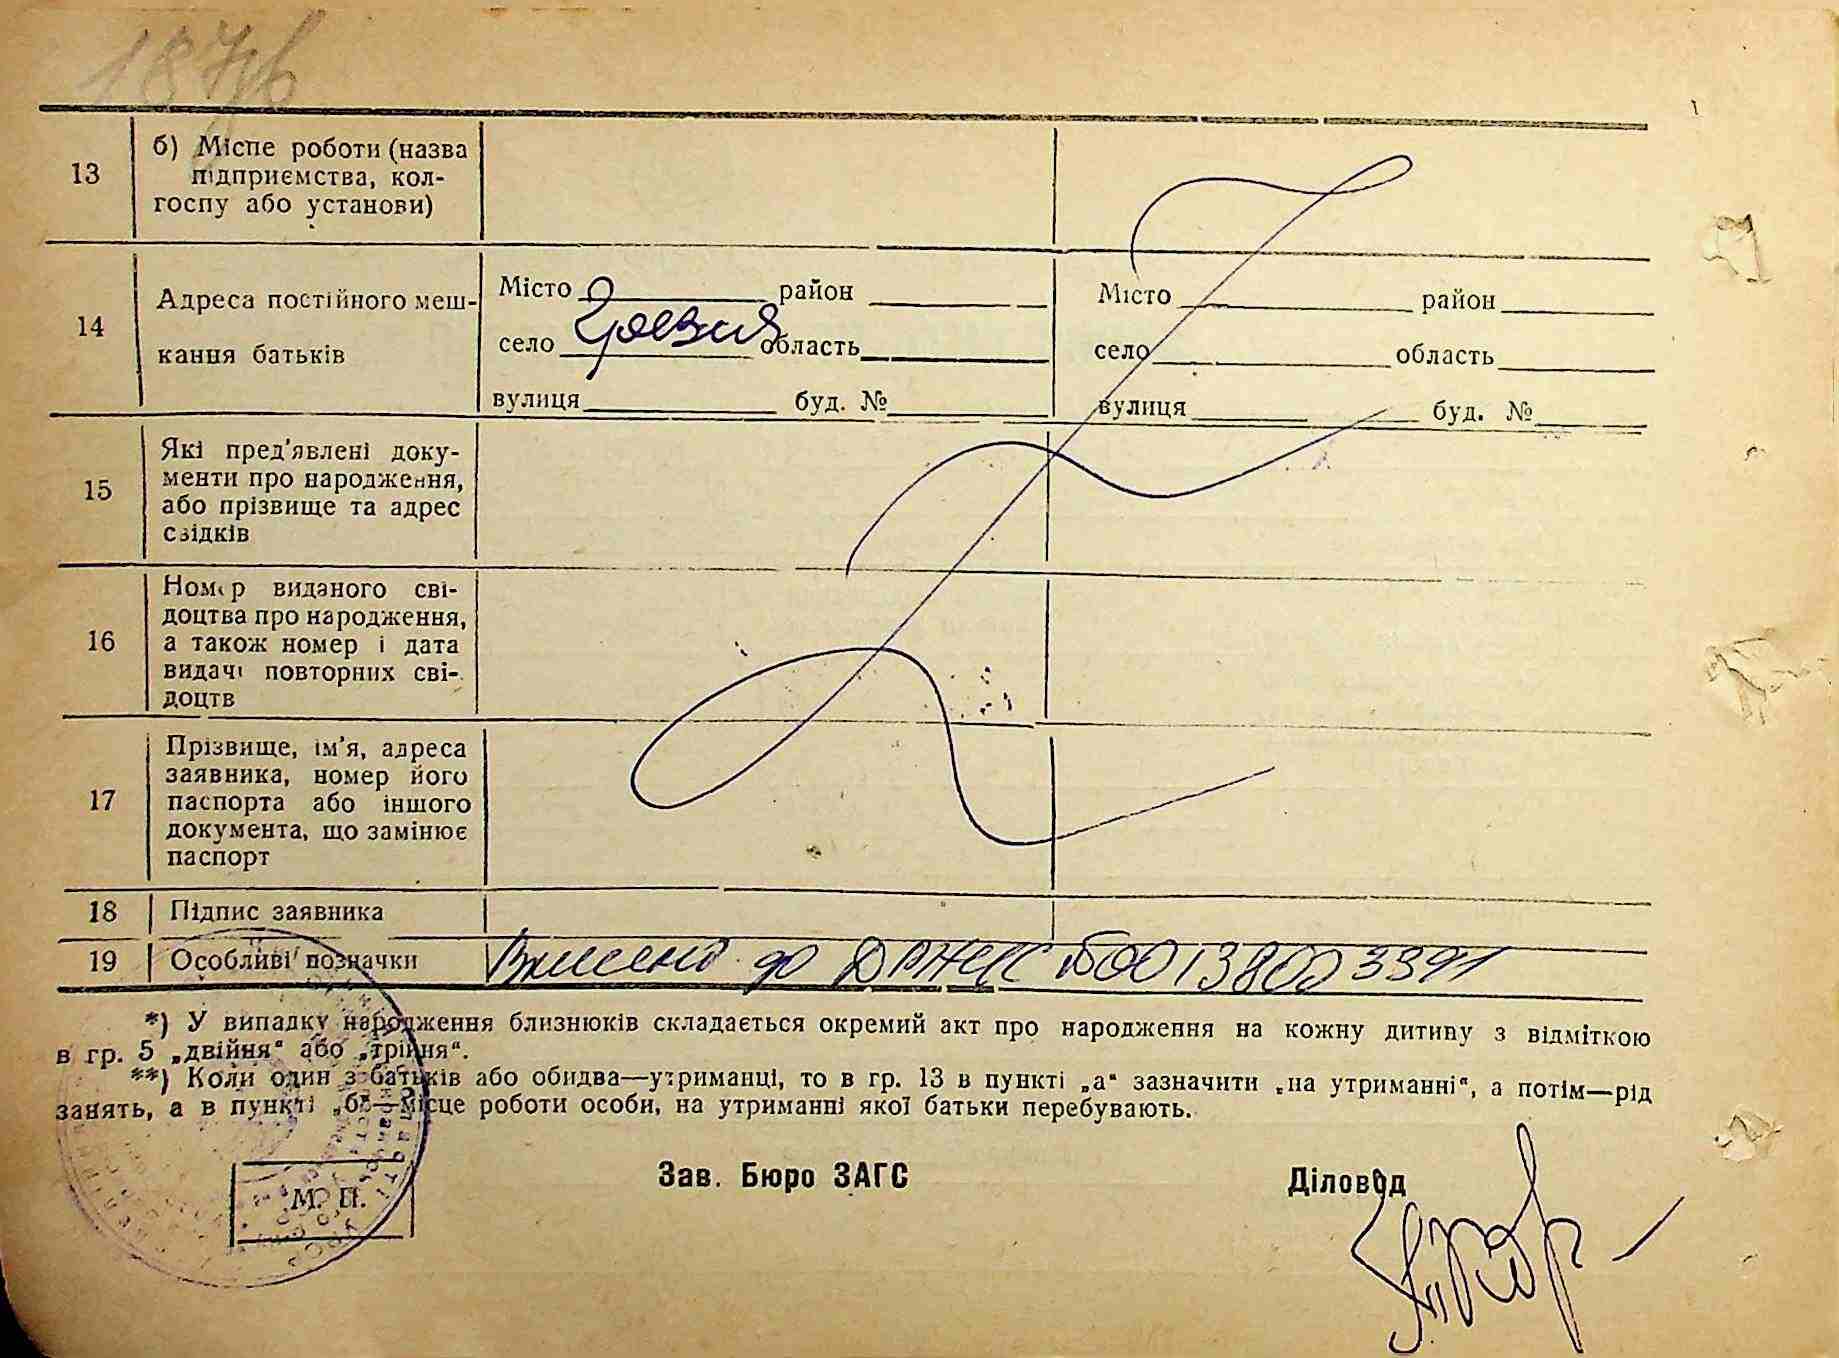 13
б) Місце роботи (назва
підприємства, кол-
госпу або установи)
14
Адреса постійного меш-
кання батьків
Місто район
село область
вулиця буд. №
Місто район
село область
вулиця буд. №
15
Які пред'явлені доку-
менти про народження,
або прізвище та адрес
свідків
16
Номер виданого сві-
доцтва про народження,
а також номер і дата
видачі повторних сві-
доцтв
17
Прізвище, ім'я, адреса
заявника, номер його
паспорта або іншого
документа, що замінює
паспорт
18 Підпис заявника
19 Особливі позначки
Внесено до ДРАЦС 00138003391
*) У випадку народження близнюків складається окремий акт про народження на кожну дитину з відміткою
в гр. 5 „двійня“ або „трійня“.
**) Коли один з батьків або обидва—утриманці, то в гр. 13 в пункті „а“ зазначити „на утриманні“, а потім—рід
занять, а в пункті „б“—місце роботи особи, на утриманні якої батьки перебувають.
Зав. Бюро ЗАГС
Діловод
М. П.